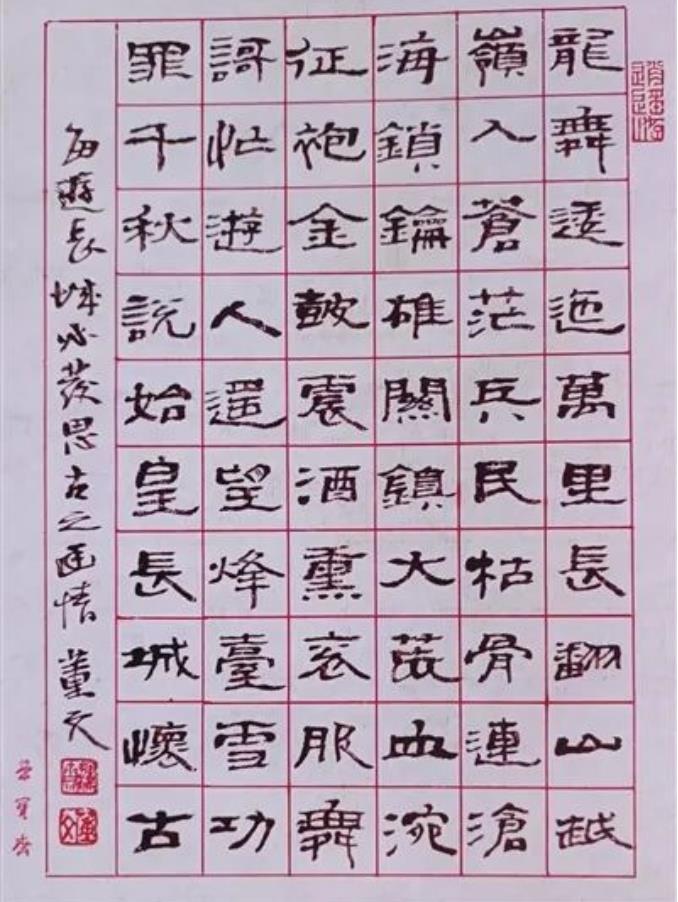 龍舞逶迤萬里長翻山越
嶺入蒼茫兵民枯骨連滄
海鎖鑰雄關鎮大荒血涴
征袍金鼓震酒熏衮服舞
謌忙遊人遥望烽臺雪功
罪千秋説始皇長城懷古
每遊長城必發思古之幽情 董文
榮寶齋